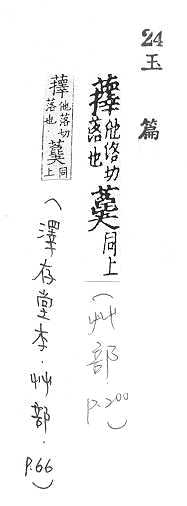 24
玉篇
蘀他洛切落也同上（艸部 P.200）
蘀他落切落也．同上
（澤存堂本．艸部．P.66）